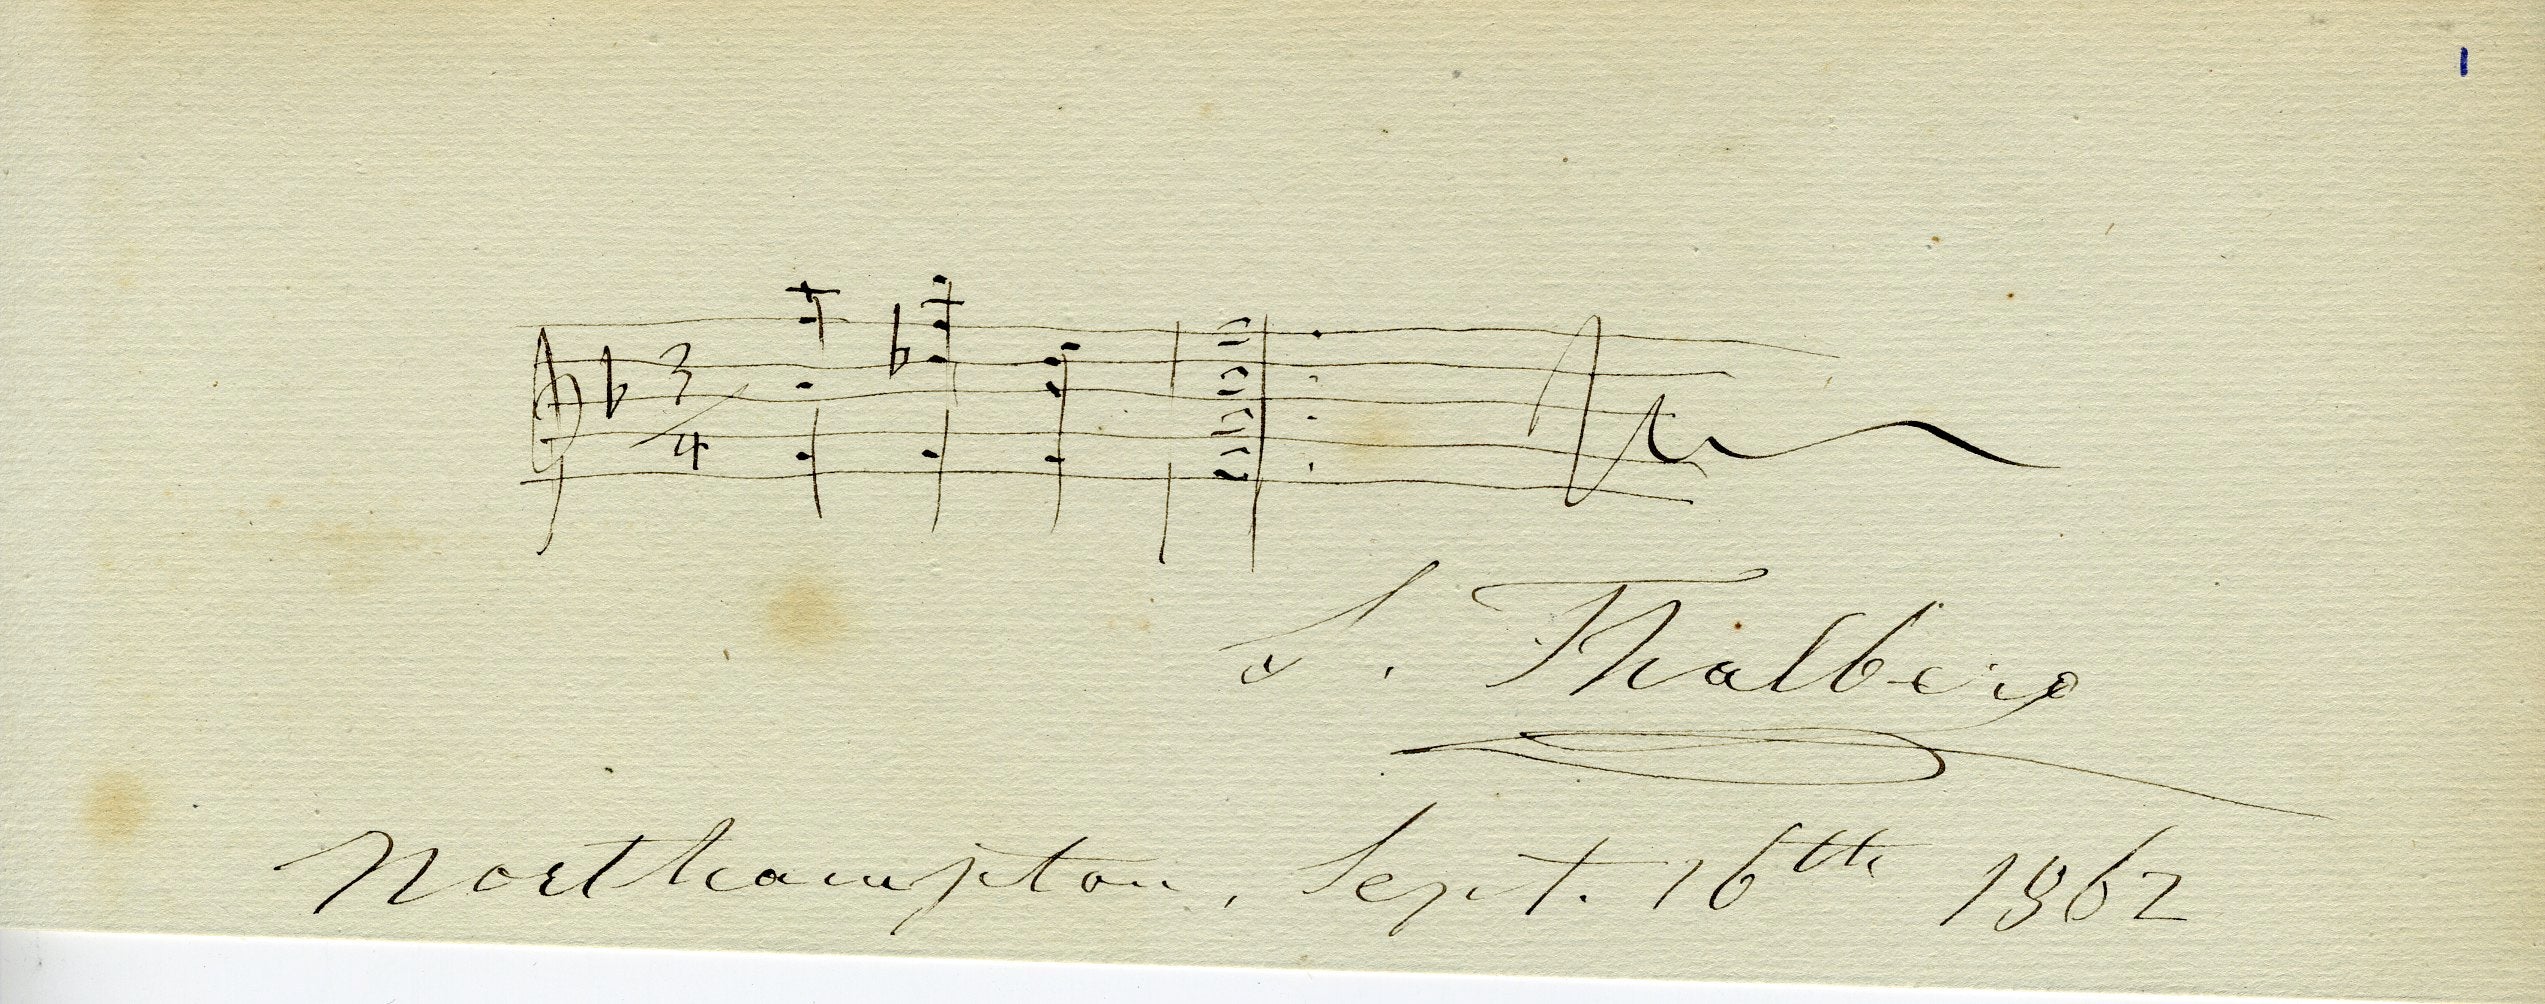 1
3/4
S. Thalberg
Northampton, Sept. 16th 1862